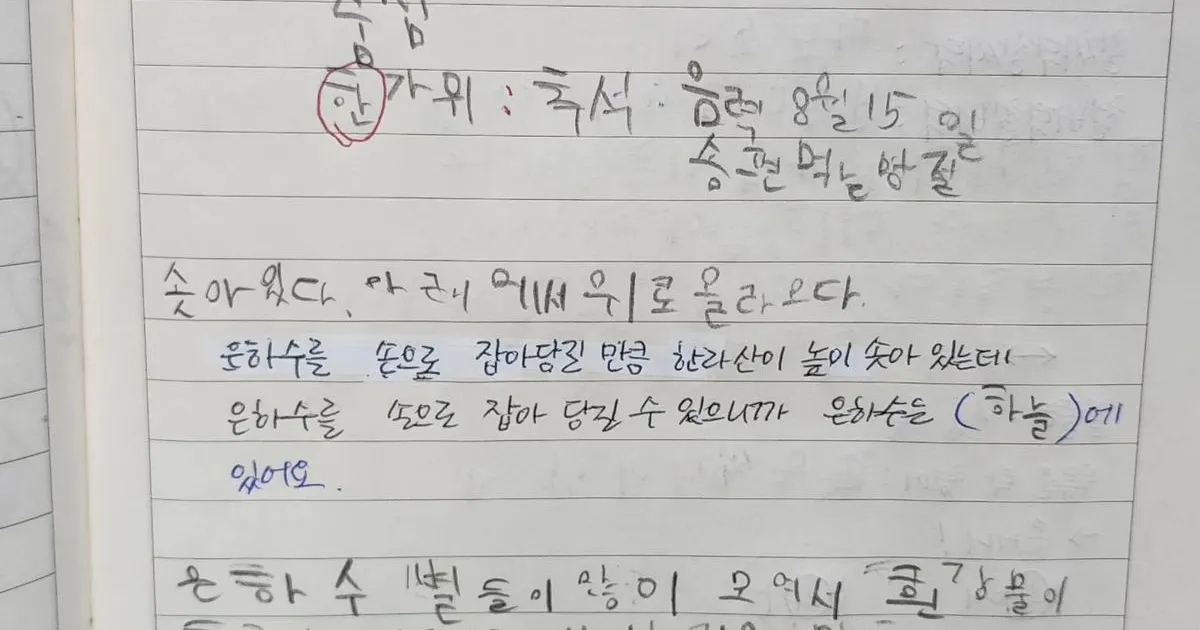 한가위 : 추석. 음력 8월 15일
송편 먹는 명절
솟아있다. 아래에서 위로 올라오다.
은하수를 손으로 잡아당길 만큼 한라산이 높이 솟아 있는데
은하수를 손으로 잡아 당길 수 있으니까 은하수는 (하늘)에
있어요.
은하수 별들이 많이 모여서 흰 강물이